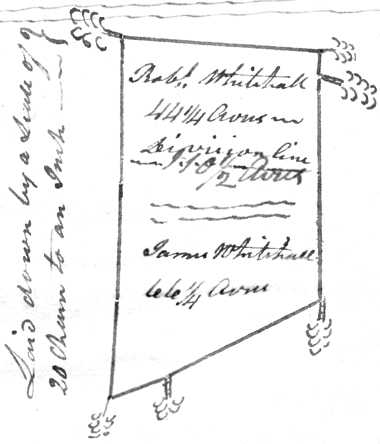 Laid down by a Scale of
20 Chain to an Inch
Robt. Whitehall
44 1/4 Acres
Division line
110 1/2 Acres
James Whitehall
66 1/4 Acres